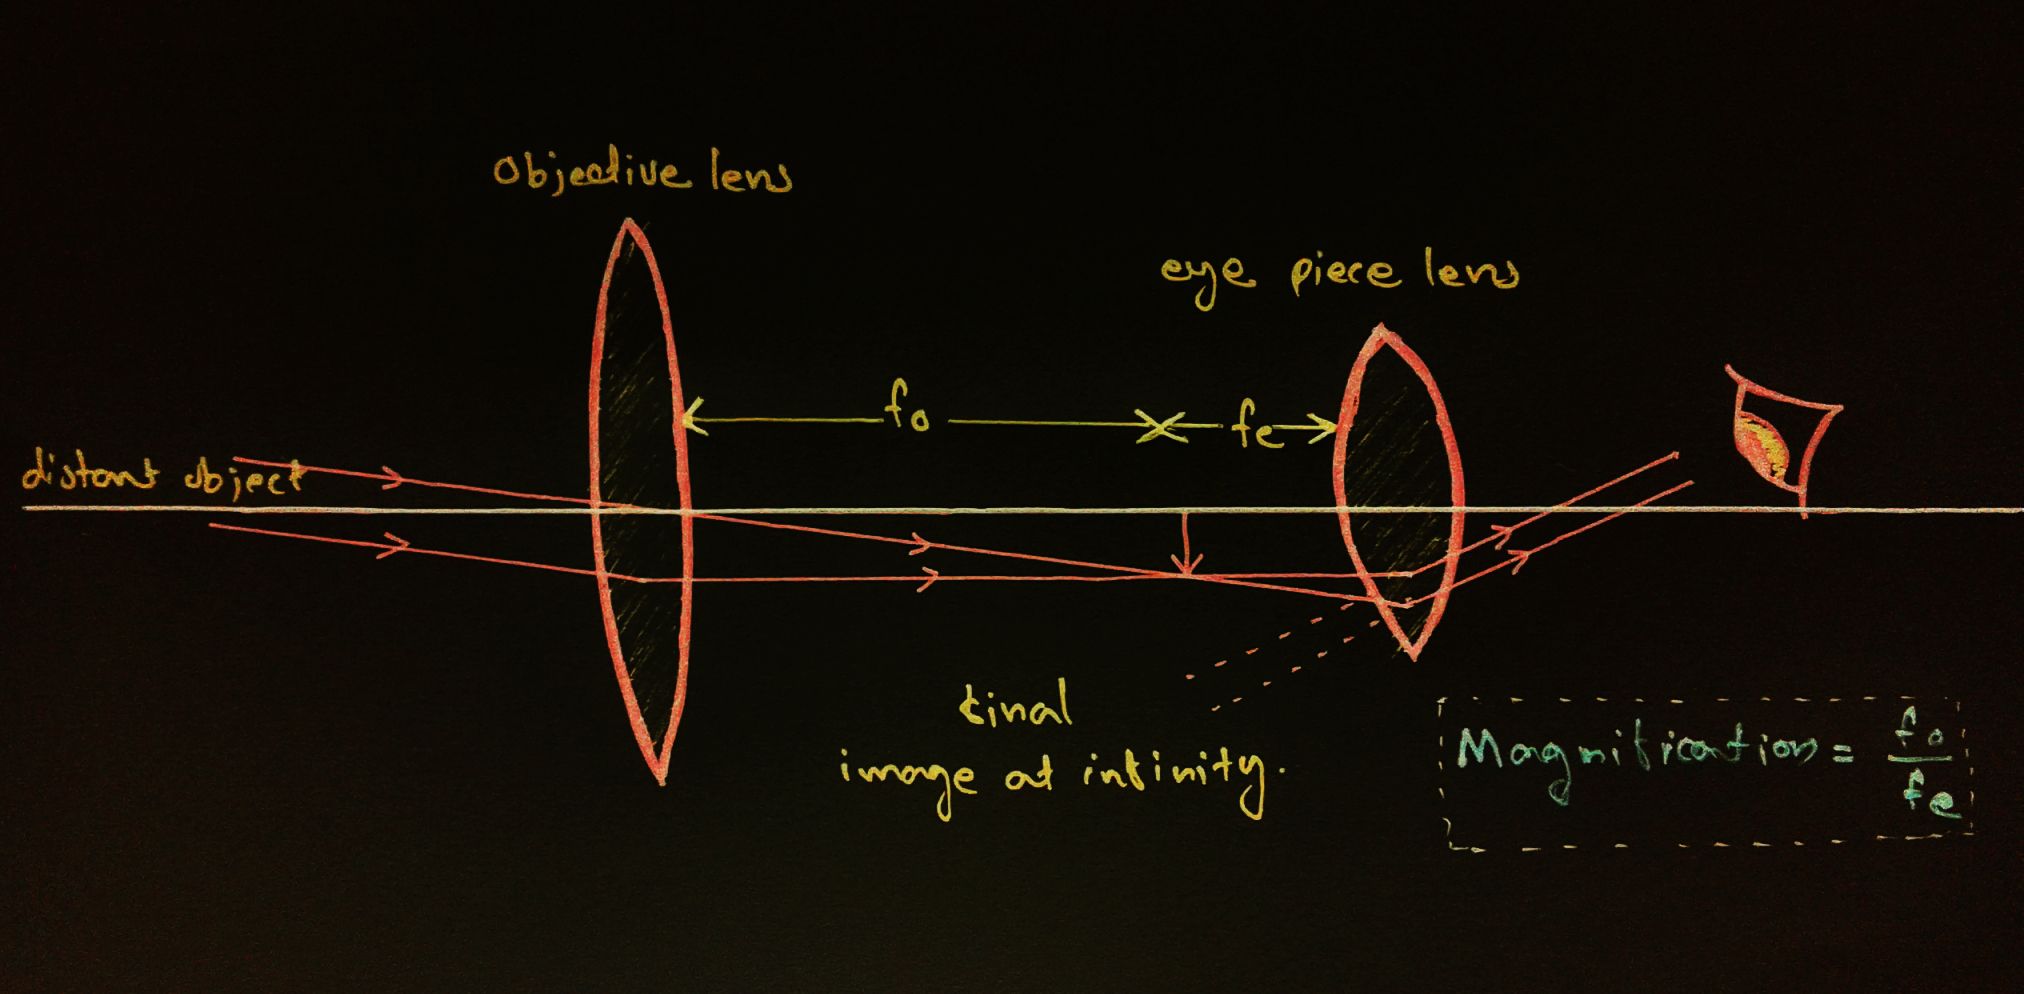 Objective lens
eye piece lens
fo
fe
distant object
final
image at infinity.
Magnification = fo
fe